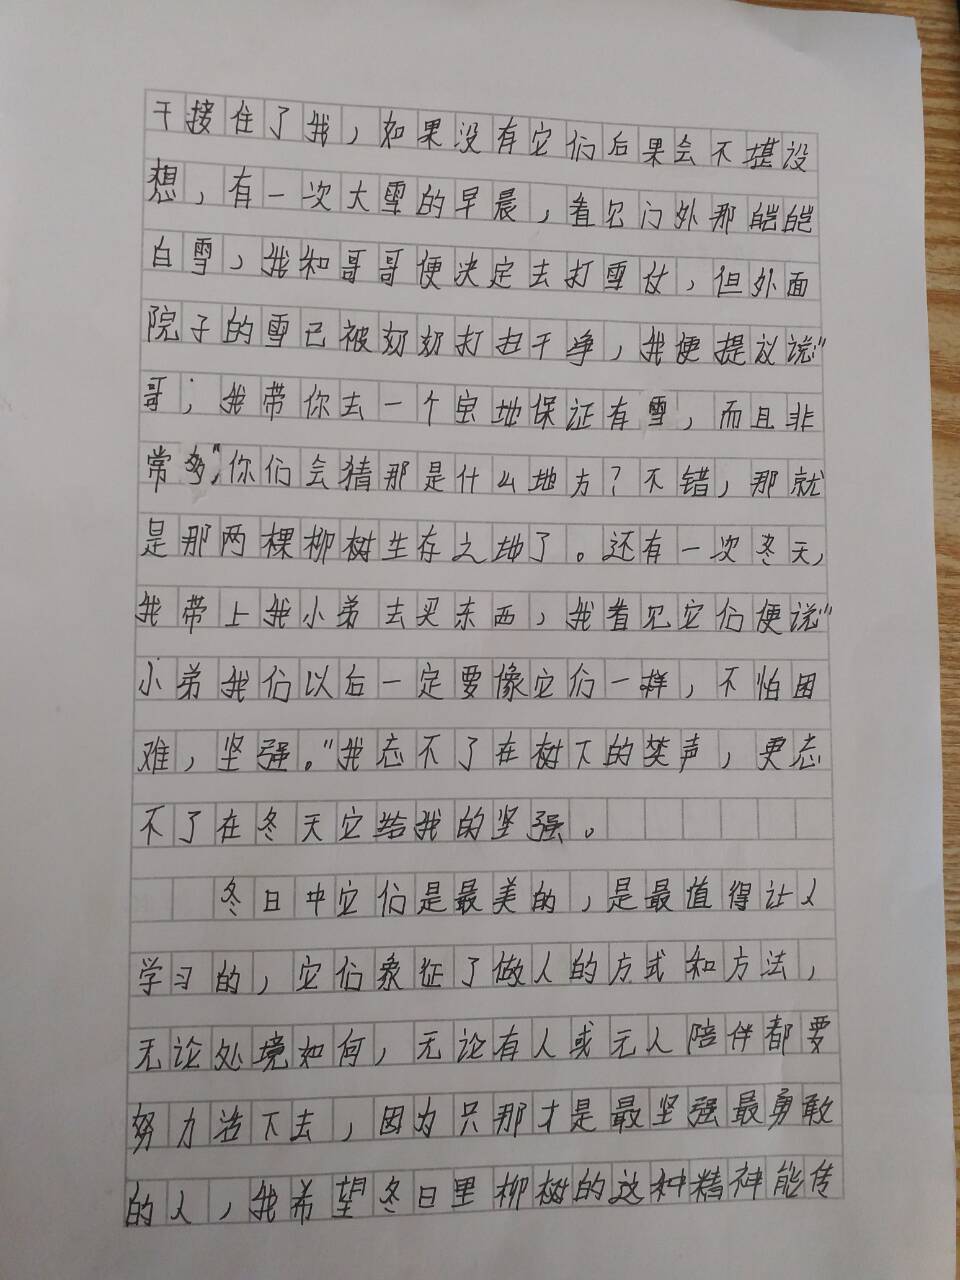 干接住了我，如果没有它们后果会不堪设
想，有一次大雪的早晨，看见门外那皑皑
白雪，我和哥哥便决定去打雪仗，但外面
院子的雪已被奶奶打扫干净，我便提议说："
哥，我带你去一个宝地保证有雪，而且非
常多"，你们会猜那是什么地方？不错，那就
是那两棵柳树生存之地了。还有一次冬天，
我带上我小弟去买东西，我看见它们便说"
小弟我们以后一定要像它们一样，不怕困
难，坚强。"我忘不了在树下的笑声，更忘
不了在冬天它给我的坚强。
冬日中它们是最美的，是最值得让人
学习的，它们象征了做人的方式和方法，
无论处境如何，无论有人或无人陪伴都要
努力活下去，因为只那才是最坚强最勇敢
的人，我希望冬日里柳树的这种精神能传